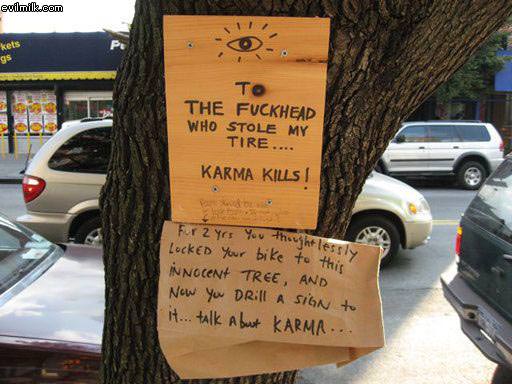 evilmilk.com
kets
gs
TO
THE FUCKHEAD
WHO STOLE MY
TIRE....
KARMA KILLS!
For 2 yrs you thoughtlessly
LOCKED your bike to this
iNNOCENT TREE, AND
Now you DRILL A SIGN to
it... talk About KARMA...